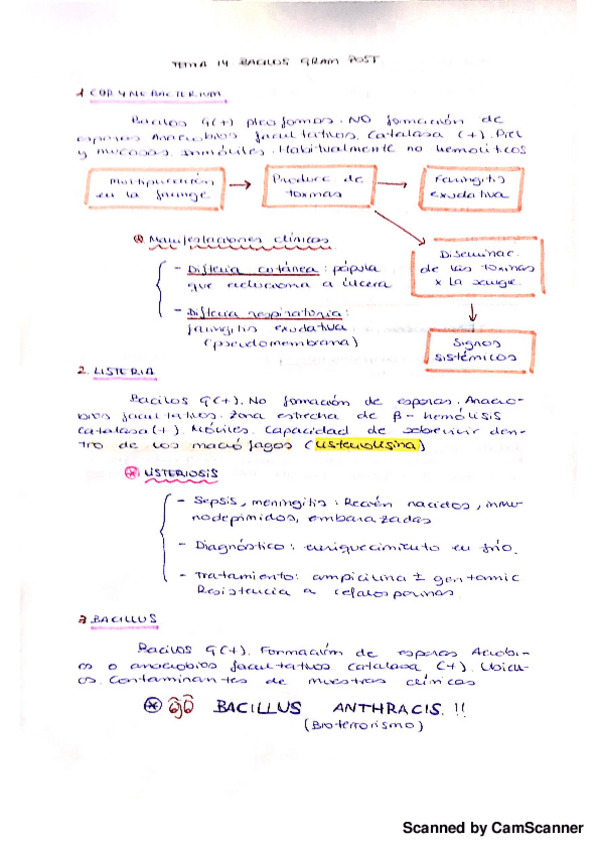 TEMA 14 BACILOS GRAM POST
1 CORYNEBACTERIUM
Bacilos G(+) pleofomos. NO formación de
esporas Anaerobios facultativos. Catalasa (+). Piel
y mucosas. inmóviles. Habitualmente no hemolíticos
Multiplicación
en la faringe
Produce de
toxinas
Faringitis
exudativa
Manifestaciones clínicas
Diseminac.
de las toxinas
x la sangre.
- Difteria cutánea: pápula
que evoluciona a úlcera
- Difteria respiratoria:
faringitis exudativa
(pseudomembrana)
Signos
sistémicos
2. LISTERIA
Bacilos G(+). No formación de esporas. Anaero-
bios facultativos. Zona estrecha de β-hemólisis
Catalasa(+). Móviles. Capacidad de sobrevivir den-
tro de los macrófagos (Listeriolisina)
LISTERIOSIS
- Sepsis, meningitis: Recién nacidos, inmu-
nodeprimidos, embarazadas
- Diagnóstico: enriquecimiento en frío.
- Tratamiento: ampicilina ± gentamic
Resistencia a cefalosporinas
3 BACILLUS
Bacilos G(+). Formación de esporas Aerobi-
os o anaerobios facultativos Catalasa (+). Ubicu-
os. Contaminantes de muestras clínicas
BACILLUS ANTHRACIS.!!
(Bioterrorismo)
Scanned by CamScanner